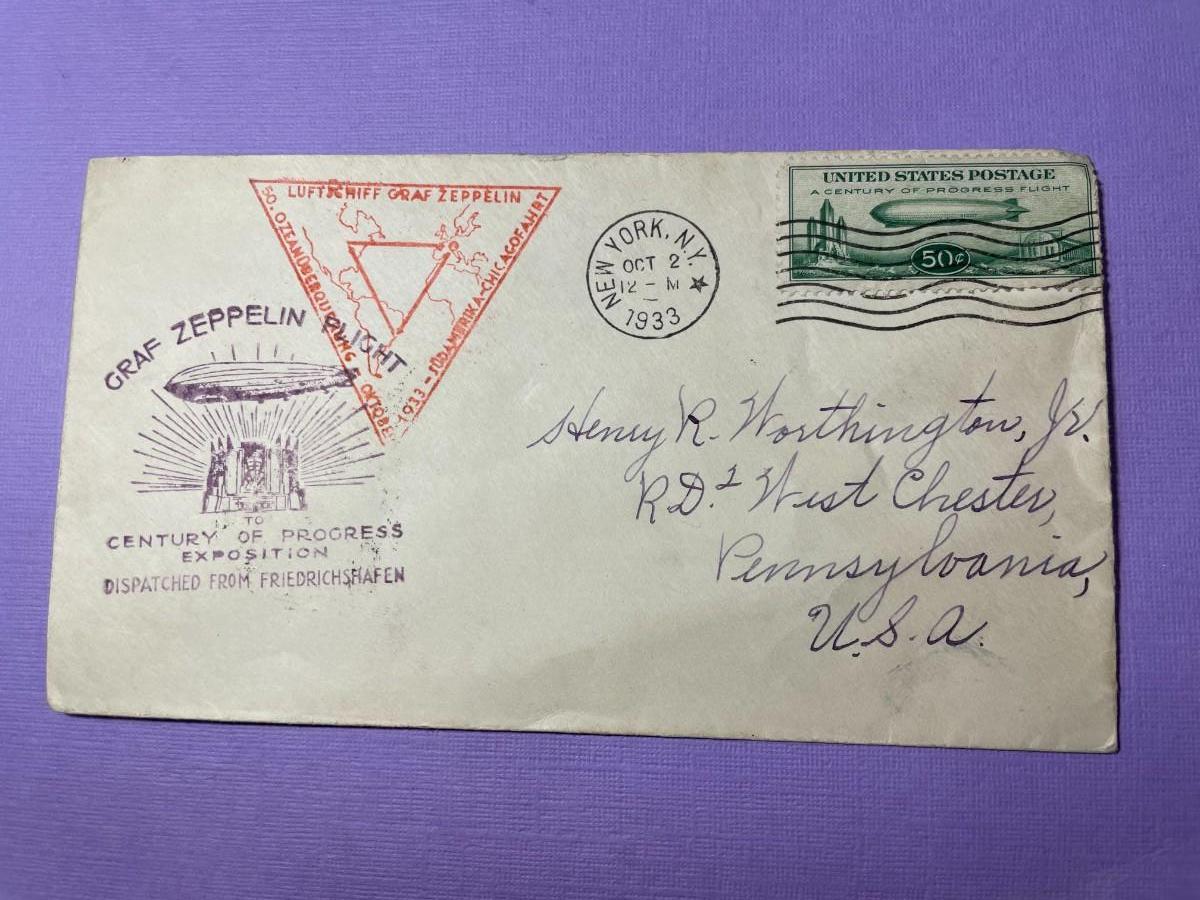 LUFTSCHIFF GRAF ZEPPELIN
50. OZEANÜBERQUERUNG
OKTOBER 1933 – SÜDAMERIKA-CHICAGOFAHRT
NEW YORK, N.Y.
OCT 2
12 – M
1933
UNITED STATES POSTAGE
A CENTURY OF PROGRESS FLIGHT
50¢
GRAF ZEPPELIN FLIGHT
TO
CENTURY OF PROGRESS
EXPOSITION
DISPATCHED FROM FRIEDRICHSHAFEN
Henry R. Worthington, Jr.
West Chester,
Pennsylvania,
U.S.A.